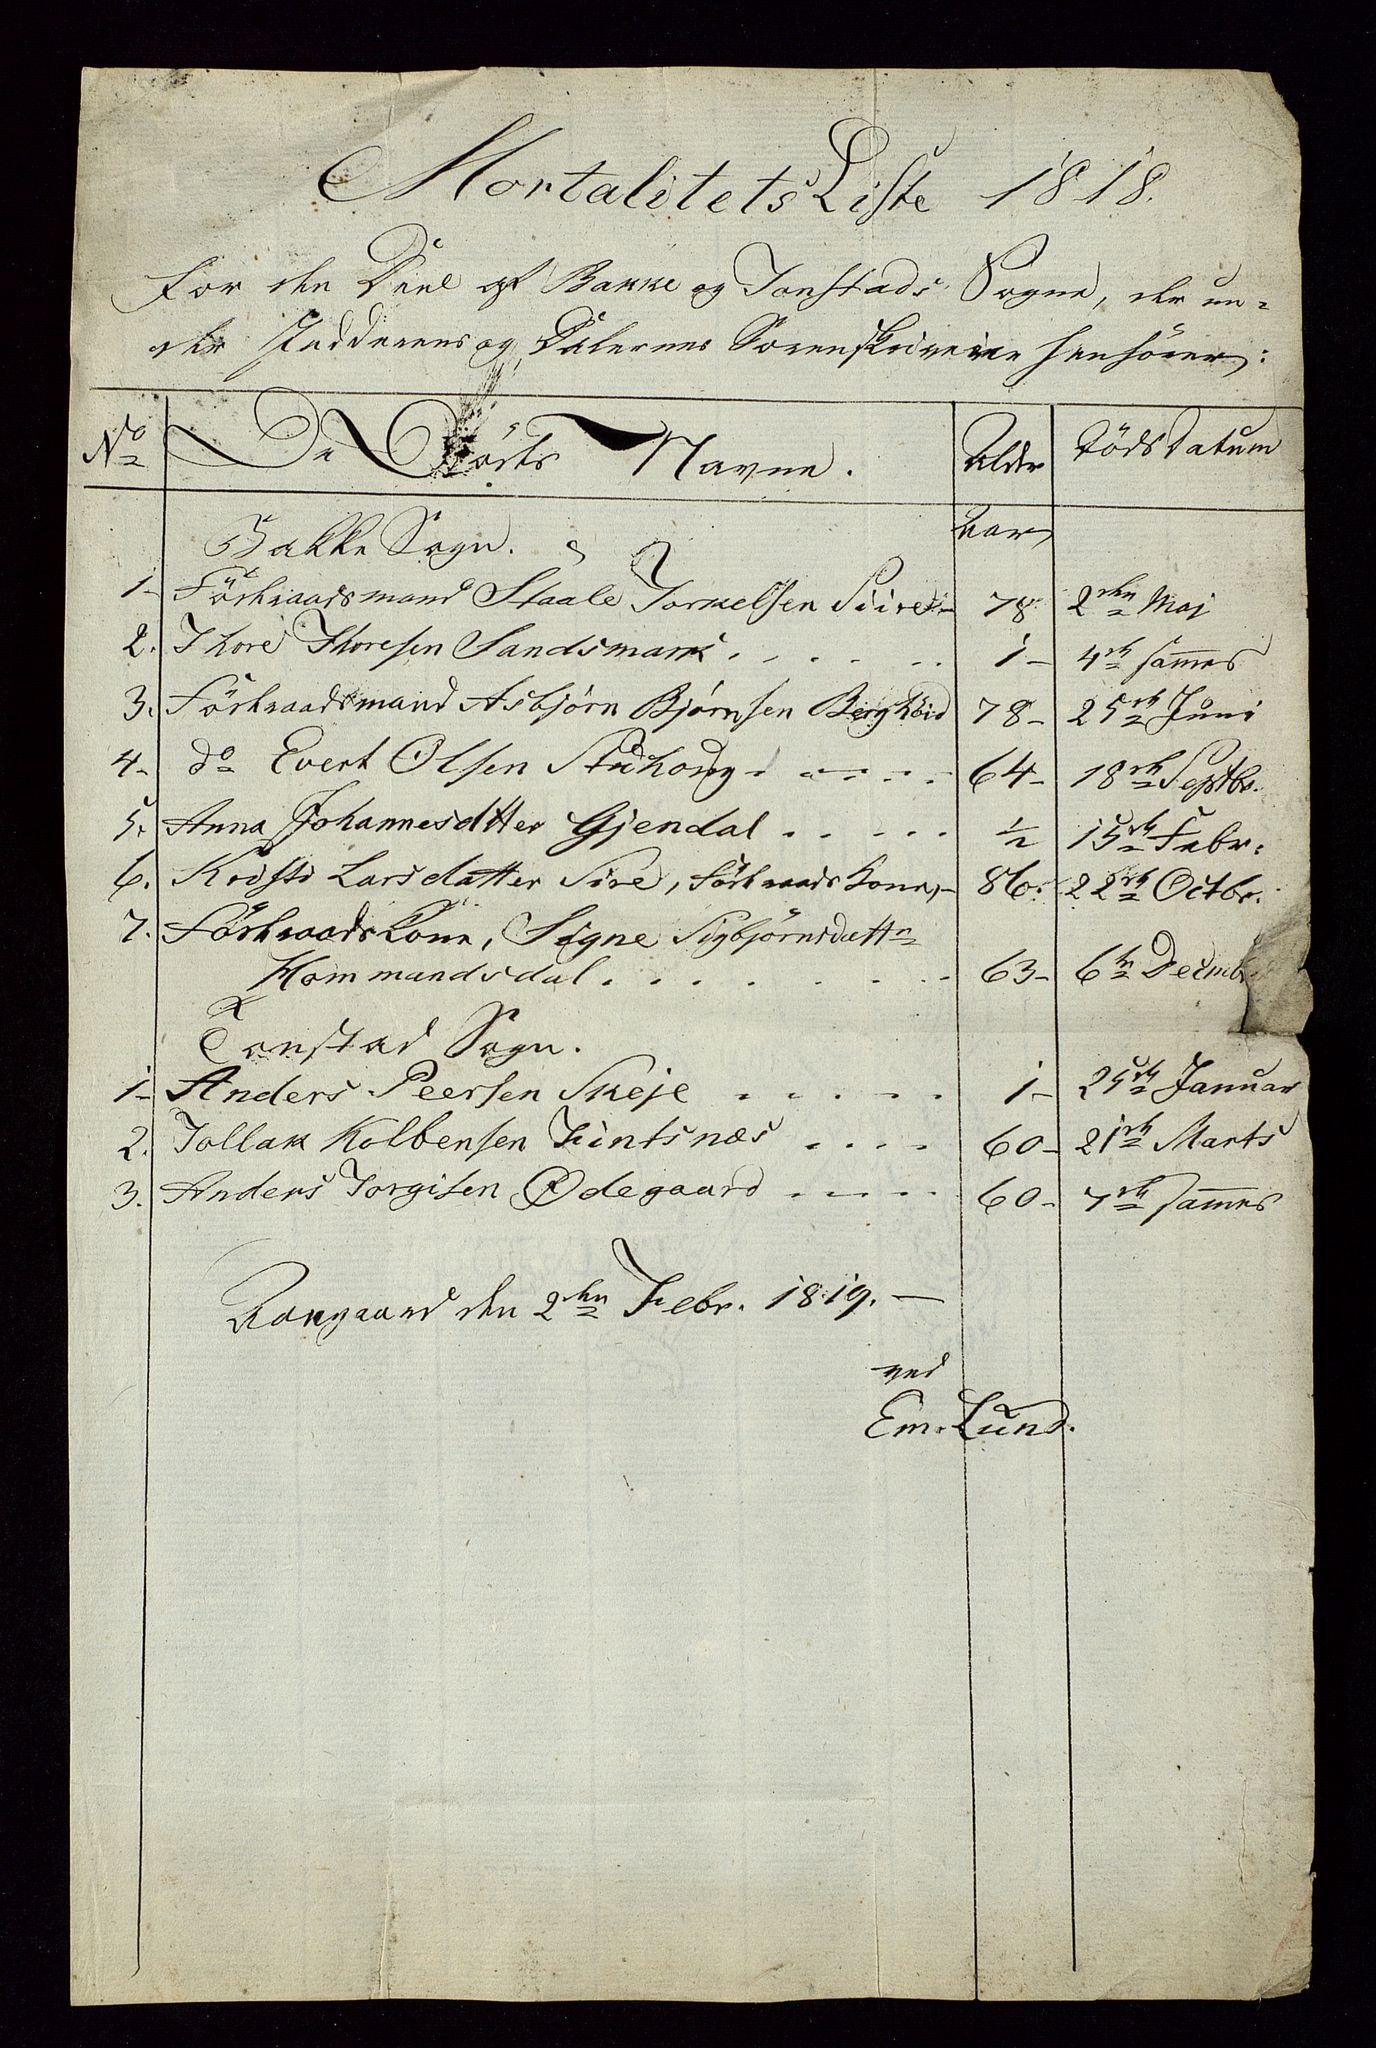 Mortalitets Liste 1818.
for den Deel af Bakke og Tonstads Sogne, der un-
der Jedderens og Dalernes Sorenskriverie henhører:
No De Dödes Navne. Alder Döds Datum
Aar
Bakke Sogn.
1- Föderaadsmand Staale Torkelsen Siire 78. 2den Maj
2. Thore Thoresen Sandsmark 1- 4de sammes
3. Föderaadsmand Asbjørn Bjørnsen 78- 25de Juni
4- do Evert Olsen 64- 18de Septbr.
5. Anna Johannesdtter Gjendal 1/2 15de Febr.
6. Larsdatter Sire, Föderaads Kone, 86. 22de Octbr.
7. Föderaads Kone, Signe Sigbjörnsdattr
Hommandsdal 63- 6te Decmbr
Tonstad Sogn.
1- Anders Peersen Skeje 1- 25de Januar
2. Tollak Kolbensen Fintsnæs 60- 21de Marts
3. Anders Torgisen Ødegaard 60- 7de sammes
den 2den Febr. 1819.
ved
Em. Lund.